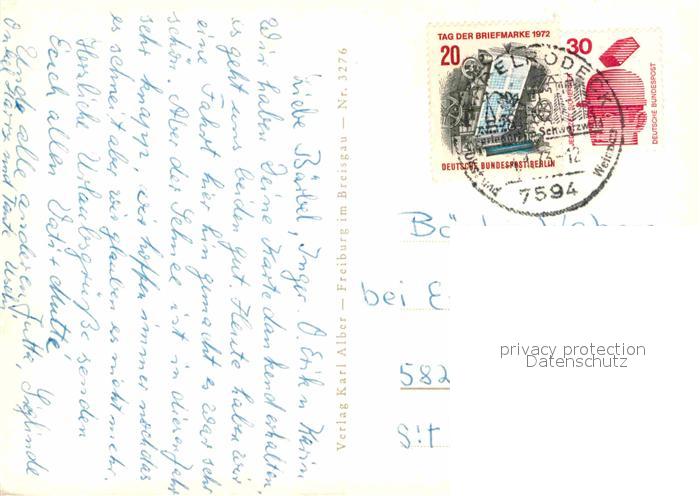 Liebe Bärbel, Inge. O. Erik u. Karin
Wir haben Deine Karte dankend erhalten,
es geht uns beiden gut. Heute haben wir
eine Fahrt hier hin gemacht es war sehr
schön. Aber der Schnee ist in diesem Jahr
sehr knapp, wir hoffen immer noch das
es schneit aber wir glauben es nicht mehr.
Herzliche Urlaubsgrüße senden
Euch allen Vati + Mutti,
und alle anderen Jutta, Sieglinde
Onkel Harry und Tante Uschi
Verlag Karl Alber — Freiburg im Breisgau — Nr. 3276
TAG DER BRIEFMARKE 1972
20
DEUTSCHE BUNDESPOST BERLIN
30
DEUTSCHE BUNDESPOST
KAPPELRODECK
im Schwarzwald
12
7594
bei E
582
privacy protection
Datenschutz